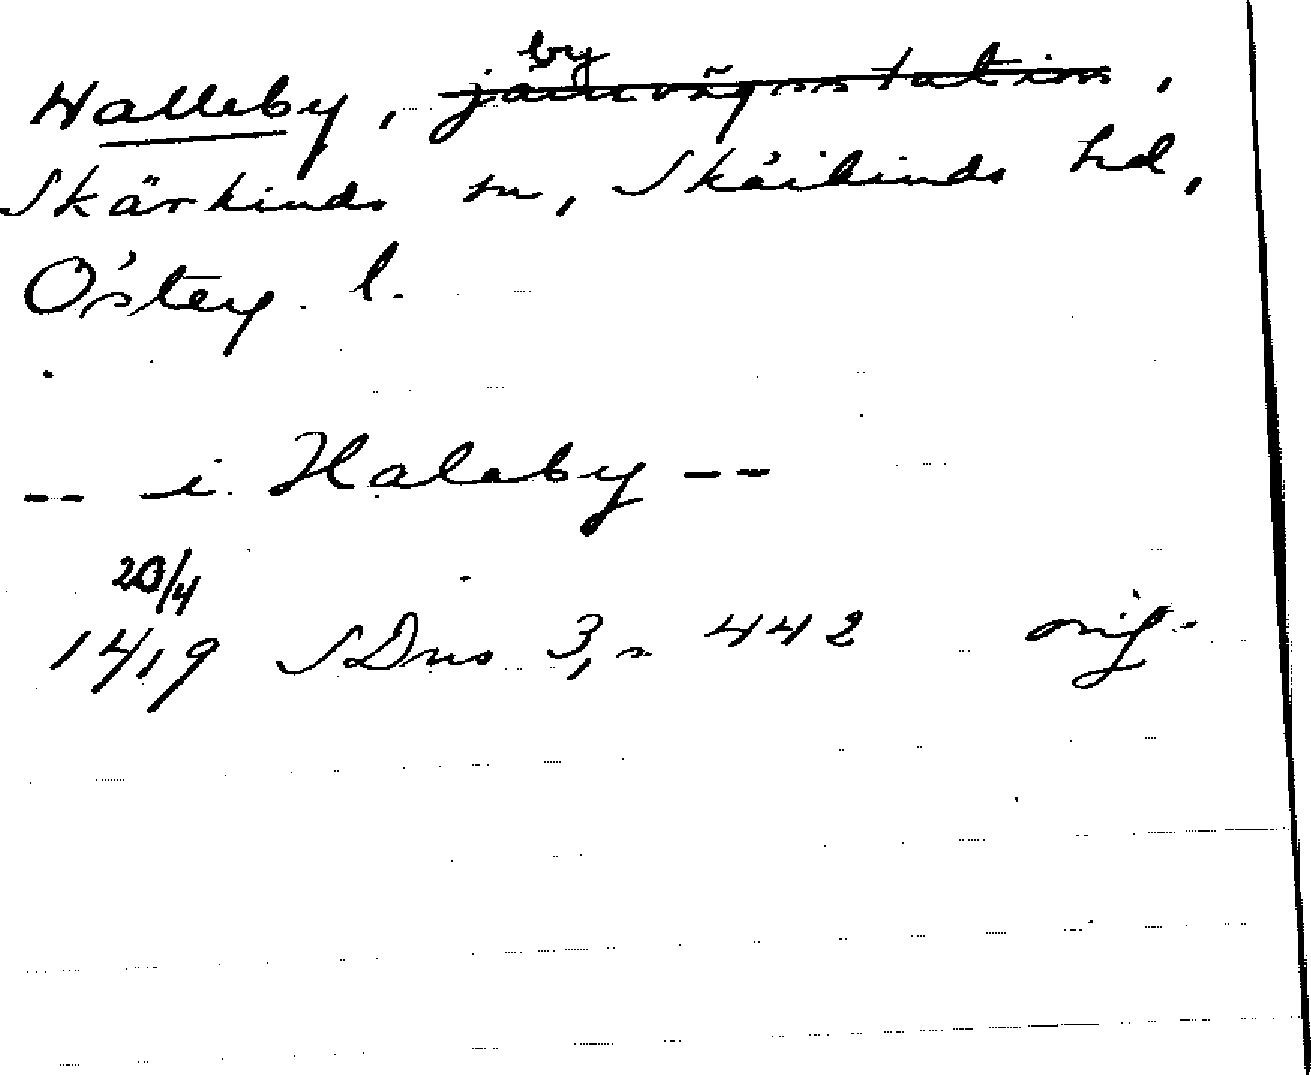 by
Walleby, järnvägsstation,
Skärkinds sn, Skärkinds hd,
Österg. l.
-- i Haleby --
20/4
1419 SDns 3, s 442 orig.